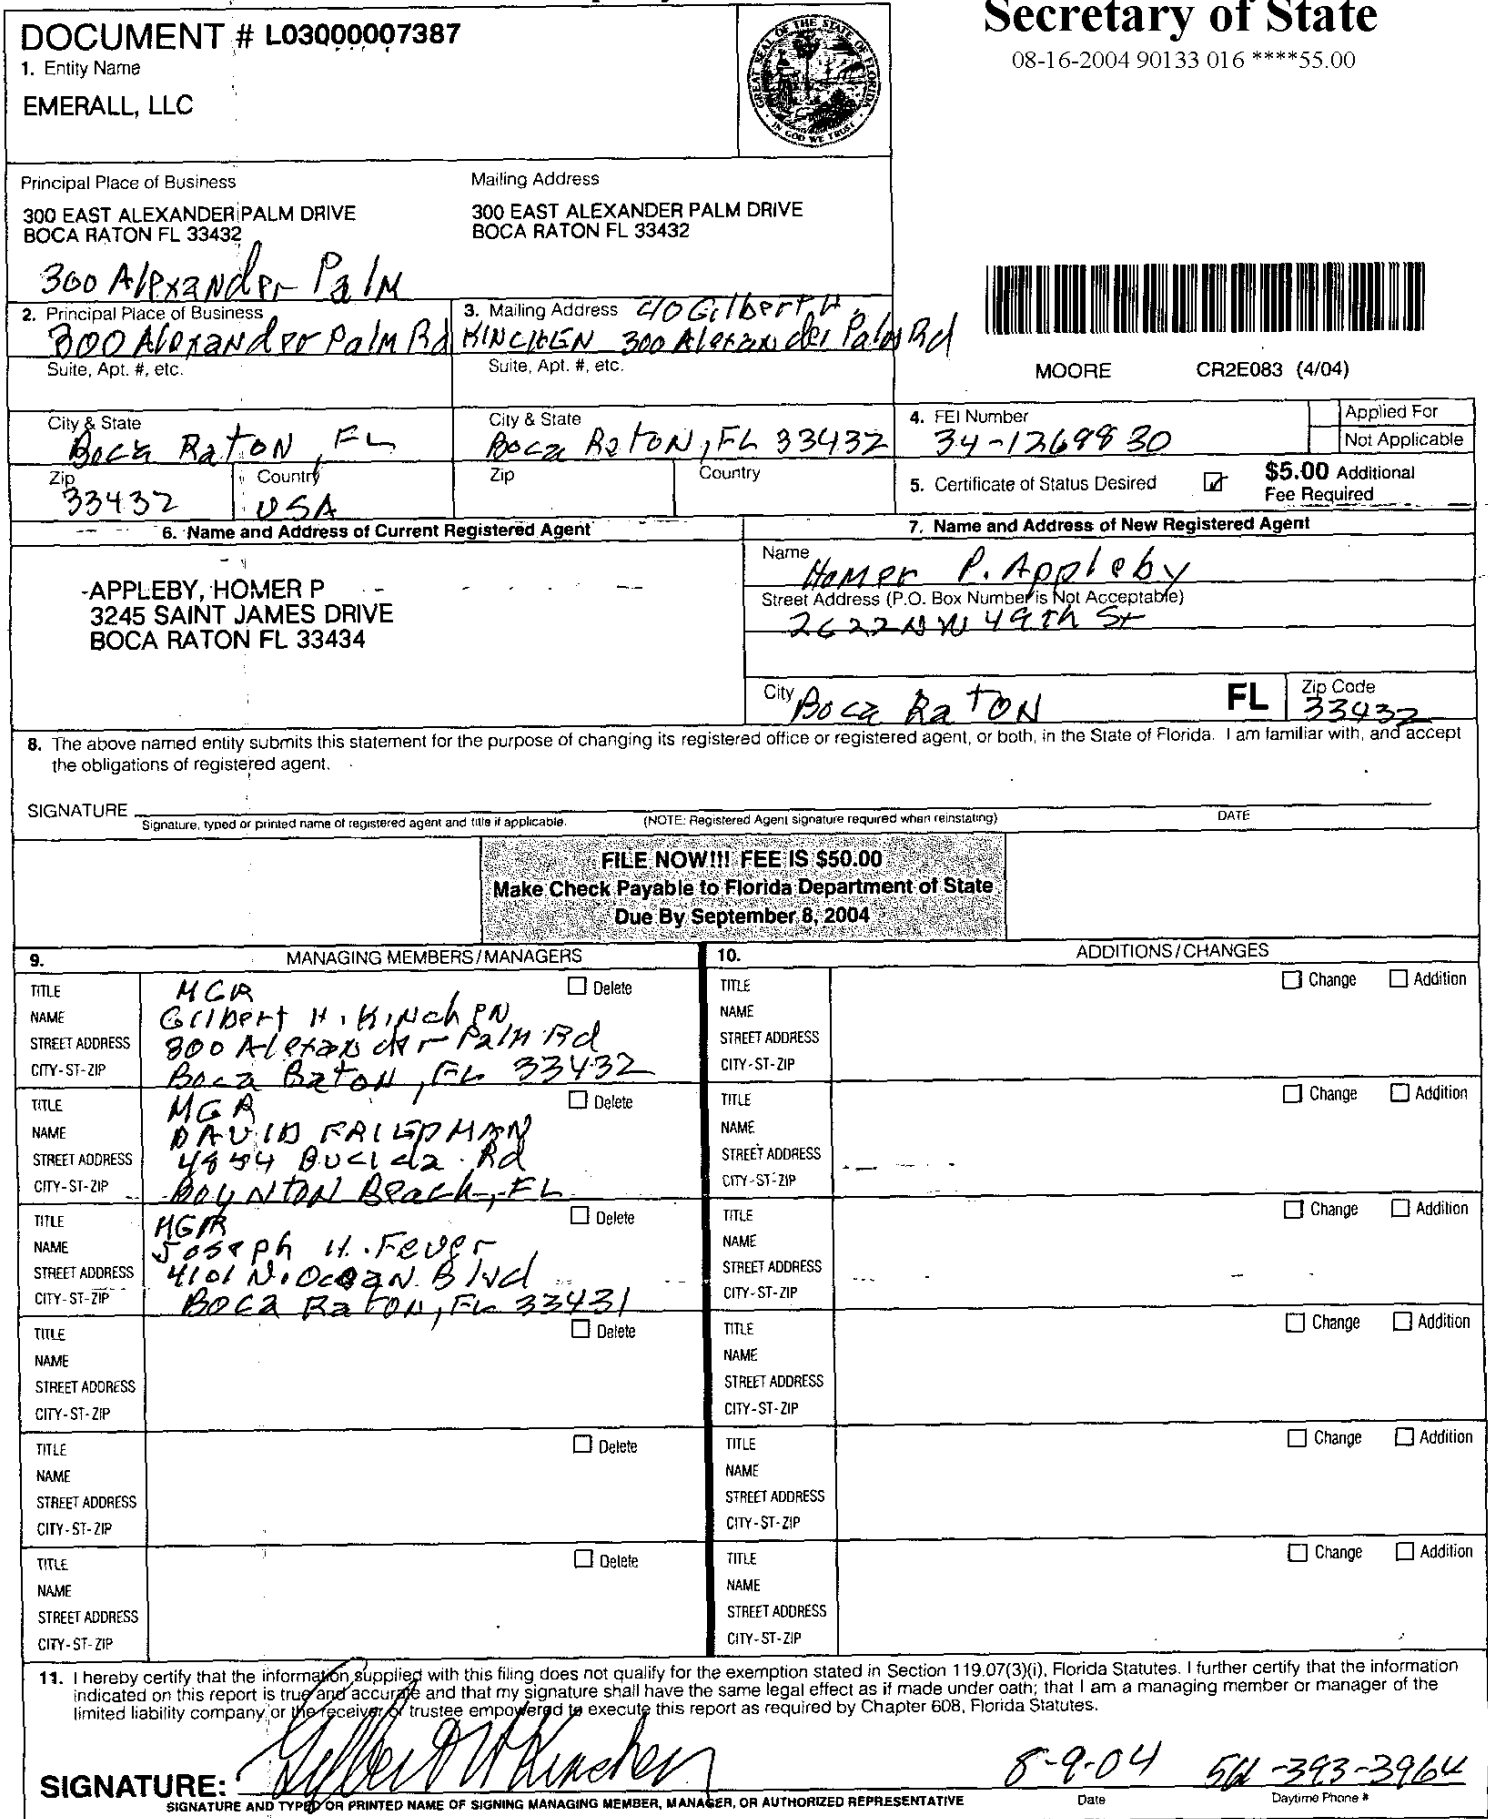 Secretary of State
08-16-2004 90133 016 ****55.00
DOCUMENT # L03000007387
1. Entity Name
EMERALL, LLC
GREAT SEAL OF THE STATE OF FLORIDA
IN GOD WE TRUST
Principal Place of Business
Mailing Address
300 EAST ALEXANDER PALM DRIVE
BOCA RATON FL 33432
300 EAST ALEXANDER PALM DRIVE
BOCA RATON FL 33432
300 Alexander Palm
2. Principal Place of Business
300 Alexander Palm Rd
3. Mailing Address c/o Gilbert H.
KINCHEN 300 Alexander Palm Rd
Suite, Apt. #, etc.
Suite, Apt. #, etc.
MOORE CR2E083 (4/04)
City & State
Boca Raton, FL
City & State
Boca Raton, FL 33432
4. FEI Number
34-1269830
Applied For
Not Applicable
Zip
33432
Country
USA
Zip
Country
5. Certificate of Status Desired
$5.00 Additional
Fee Required
6. Name and Address of Current Registered Agent
7. Name and Address of New Registered Agent
APPLEBY, HOMER P
3245 SAINT JAMES DRIVE
BOCA RATON FL 33434
Name
Homer P. Appleby
Street Address (P.O. Box Number is Not Acceptable)
2622 NW 49th St
City Boca Raton
FL
Zip Code
33432
8. The above named entity submits this statement for the purpose of changing its registered office or registered agent, or both, in the State of Florida. I am familiar with, and accept
the obligations of registered agent.
SIGNATURE
Signature, typed or printed name of registered agent and title if applicable.
(NOTE: Registered Agent signature required when reinstating)
DATE
FILE NOW!!! FEE IS $50.00
Make Check Payable to Florida Department of State
Due By September 8, 2004
9. MANAGING MEMBERS/MANAGERS
10. ADDITIONS/CHANGES
TITLE MGR Delete
NAME Gilbert H. Kinchen
STREET ADDRESS 300 Alexander Palm Rd
CITY-ST-ZIP Boca Raton, FL 33432
TITLE Change Addition
NAME
STREET ADDRESS
CITY-ST-ZIP
TITLE MGR Delete
NAME DAVID
STREET ADDRESS Bucida Rd
CITY-ST-ZIP BOYNTON Beach, FL
TITLE Change Addition
NAME
STREET ADDRESS
CITY-ST-ZIP
TITLE MGR Delete
NAME Joseph H. Fever
STREET ADDRESS 4101 N. Ocean Blvd
CITY-ST-ZIP Boca Raton, FL 33431
TITLE Change Addition
NAME
STREET ADDRESS
CITY-ST-ZIP
TITLE Delete
NAME
STREET ADDRESS
CITY-ST-ZIP
TITLE Change Addition
NAME
STREET ADDRESS
CITY-ST-ZIP
TITLE Delete
NAME
STREET ADDRESS
CITY-ST-ZIP
TITLE Change Addition
NAME
STREET ADDRESS
CITY-ST-ZIP
TITLE Delete
NAME
STREET ADDRESS
CITY-ST-ZIP
TITLE Change Addition
NAME
STREET ADDRESS
CITY-ST-ZIP
11. I hereby certify that the information supplied with this filing does not qualify for the exemption stated in Section 119.07(3)(i), Florida Statutes. I further certify that the information
indicated on this report is true and accurate and that my signature shall have the same legal effect as if made under oath; that I am a managing member or manager of the
limited liability company or the receiver or trustee empowered to execute this report as required by Chapter 608, Florida Statutes.
SIGNATURE: Gilbert H Kinchen 8-9-04 561-393-3964
SIGNATURE AND TYPED OR PRINTED NAME OF SIGNING MANAGING MEMBER, MANAGER, OR AUTHORIZED REPRESENTATIVE
Date
Daytime Phone #